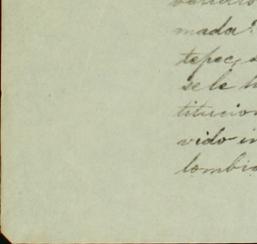 mada.
tepec,
se le h
titucion
vido in
lombia